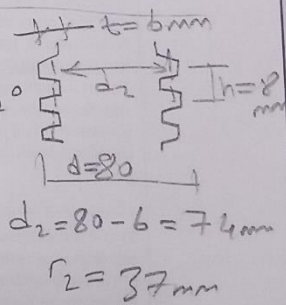 t=6mm
d2
h=8
mm
d=80
d2=80-6=74mm
r2=37mm